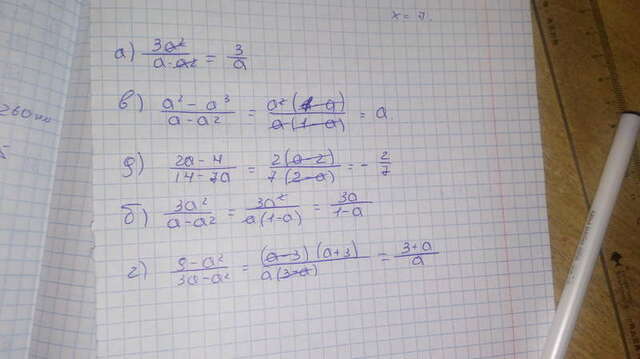 x = 7.
а) 3a²/(a·a²) = 3/a
в) (a² - a³)/(a - a²) = a²(1-a)/(a(1-a)) = a
д) (2a-4)/(14-7a) = 2(a-2)/(7(2-a)) = -2/7
б) 3a²/(a-a²) = 3a²/(a(1-a)) = 3a/(1-a)
г) (9-a²)/(3a-a²) = (a-3)(a+3)/(a(3-a)) = (3+a)/a